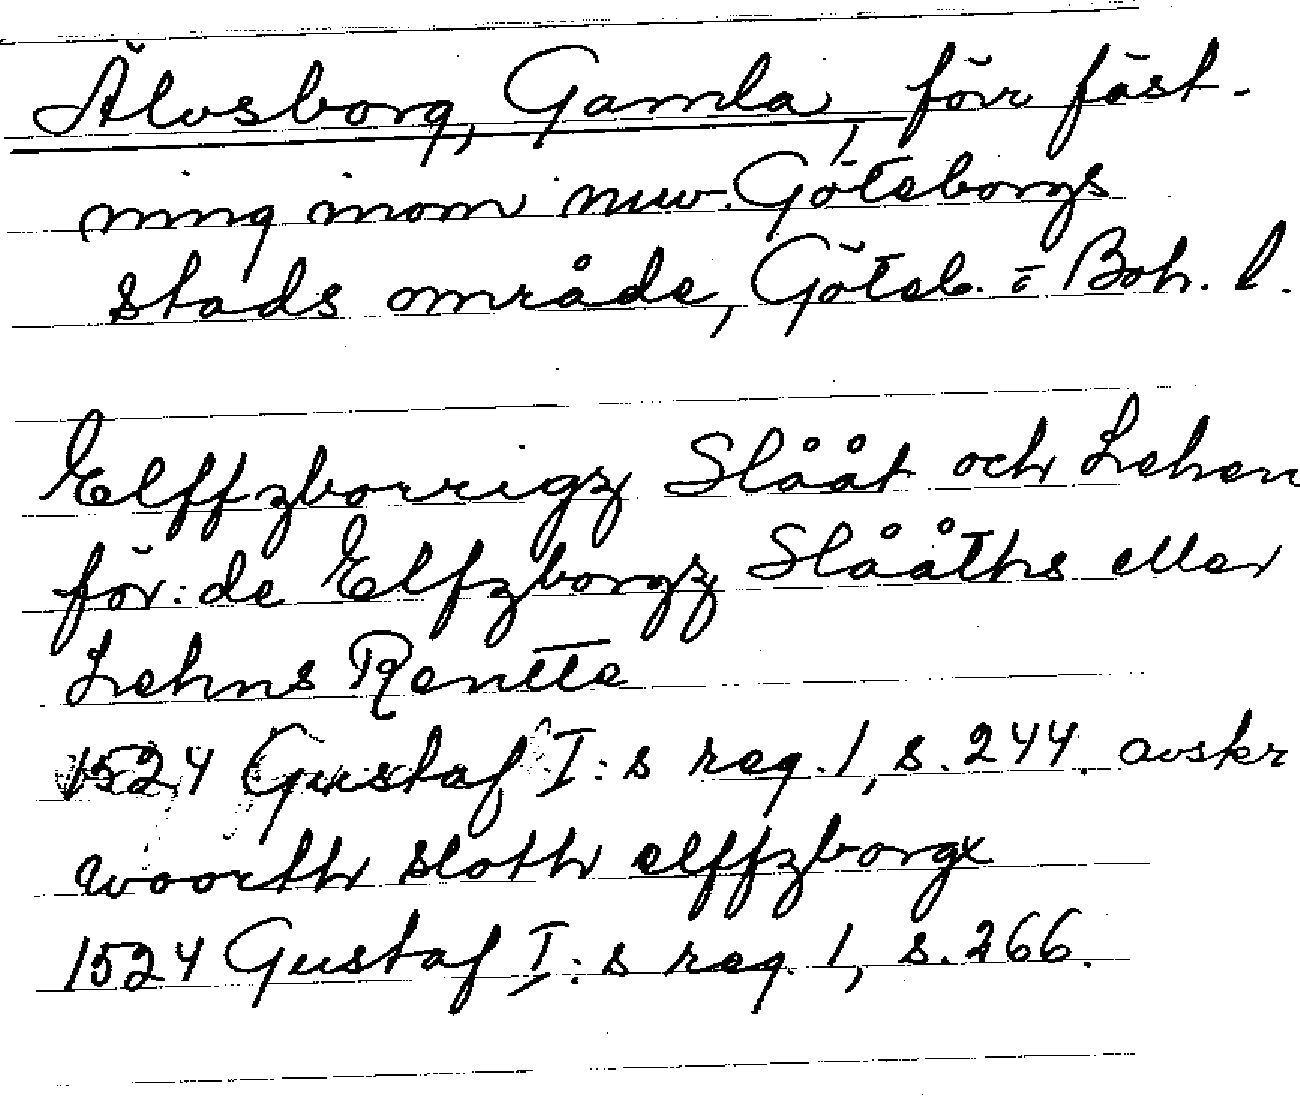 Älvsborg, Gamla, förr fäst-
ning inom nuv. Göteborgs
stads område, Göteb. o Boh. l.
Elffzborrigz Slååt och Lehen
för: de Elfzborgz Slååths eller
Lehns Rentte
1524 Gustaf I:s reg. 1, s. 244. avskr
woorth sloth elffzborgx
1524 Gustaf I:s reg. 1, s. 266.